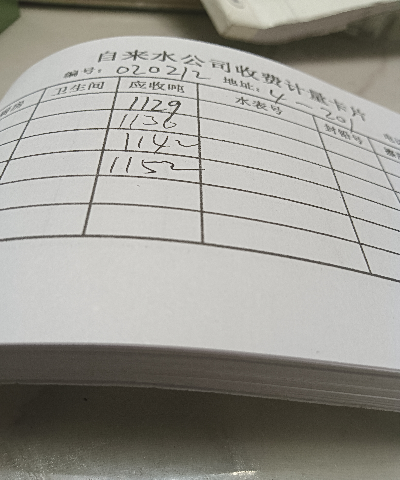 自来水公司收费计量卡片
编号: 020212 地址: 4-201
卫生间 应收吨 水表号 封铅号
1129
1136
1142
1152